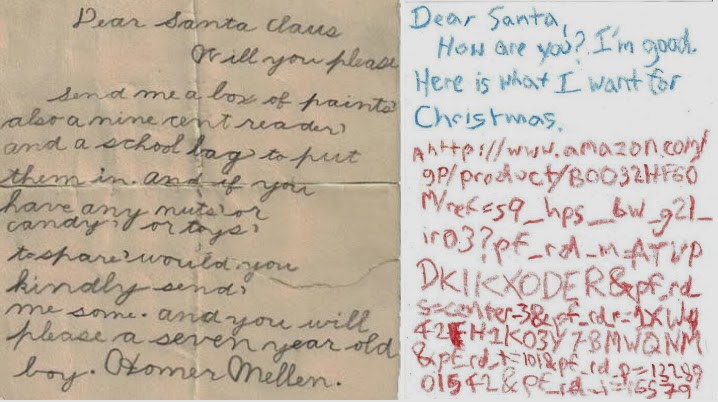 Dear Santa Claus
Will you please
send me a box of paints,
also a nine cent reader,
and a school bag to put
them in. and if you
have any nuts, or
candy, or toys,
to spare, would you
kindly send,
me some. and you will
please a seven year old
boy. Homer Mellen.
Dear Santa,
How are you? I'm good.
Here is what I want for
Christmas.
http://www.amazon.com/
gp/product/B0032HF60
M/ref=s9_hps_bw_g21_
ir03?pf_rd_m=ATVP
DKIKX0DER&pf_rd_
s=center-3&pf_rd_r=1XW4
421H1K03Y78MWQNM
&pf_rd_t=101&pf_rd_p=13289
01542&pf_rd_i=16579